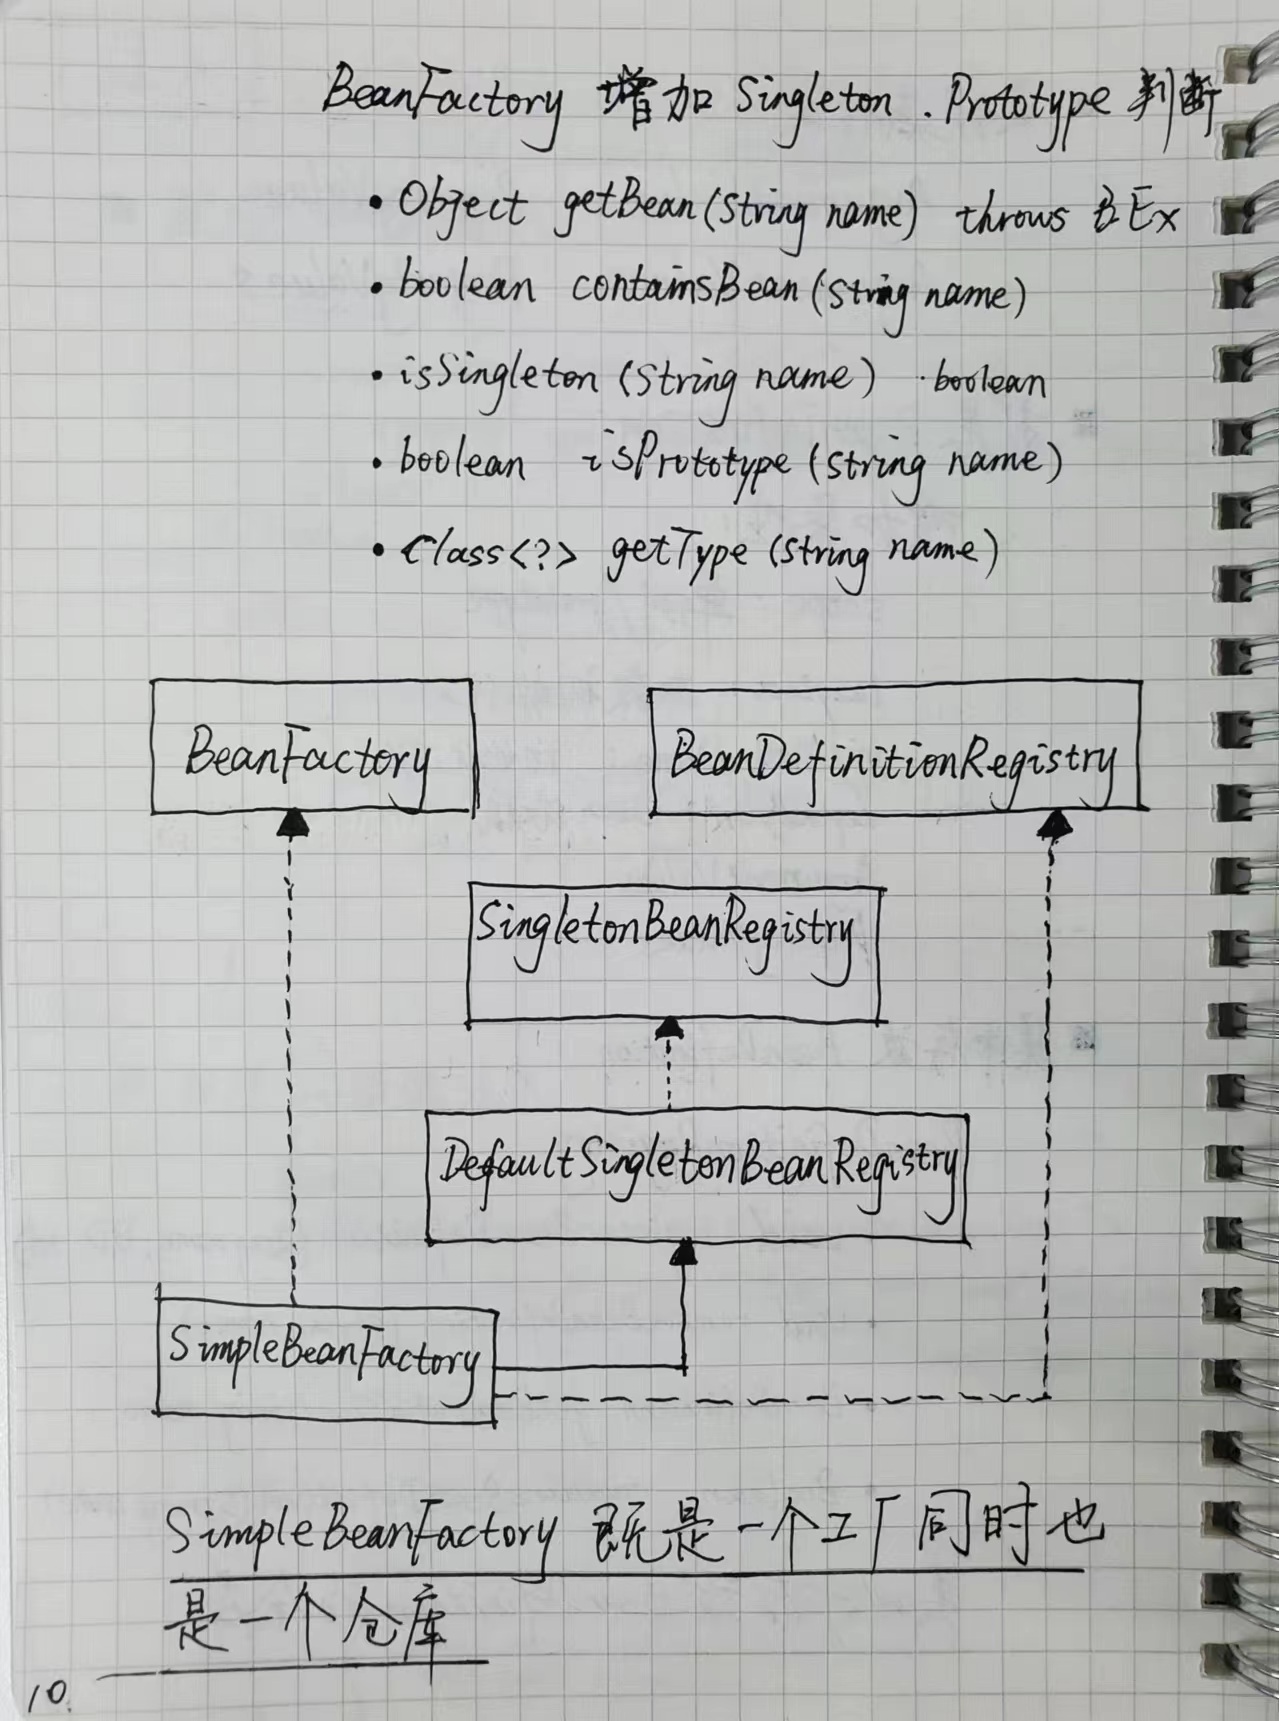 BeanFactory 增加 Singleton . Prototype 判断
• Object getBean(String name) throws BEx
• boolean containsBean(String name)
• isSingleton (String name) . boolean
• boolean isPrototype (String name)
• Class<?> getType (String name)
BeanFactory
BeanDefinitionRegistry
SingletonBeanRegistry
DefaultSingletonBeanRegistry
SimpleBeanFactory
SimpleBeanFactory 既是一个工厂同时也
是一个仓库
10.